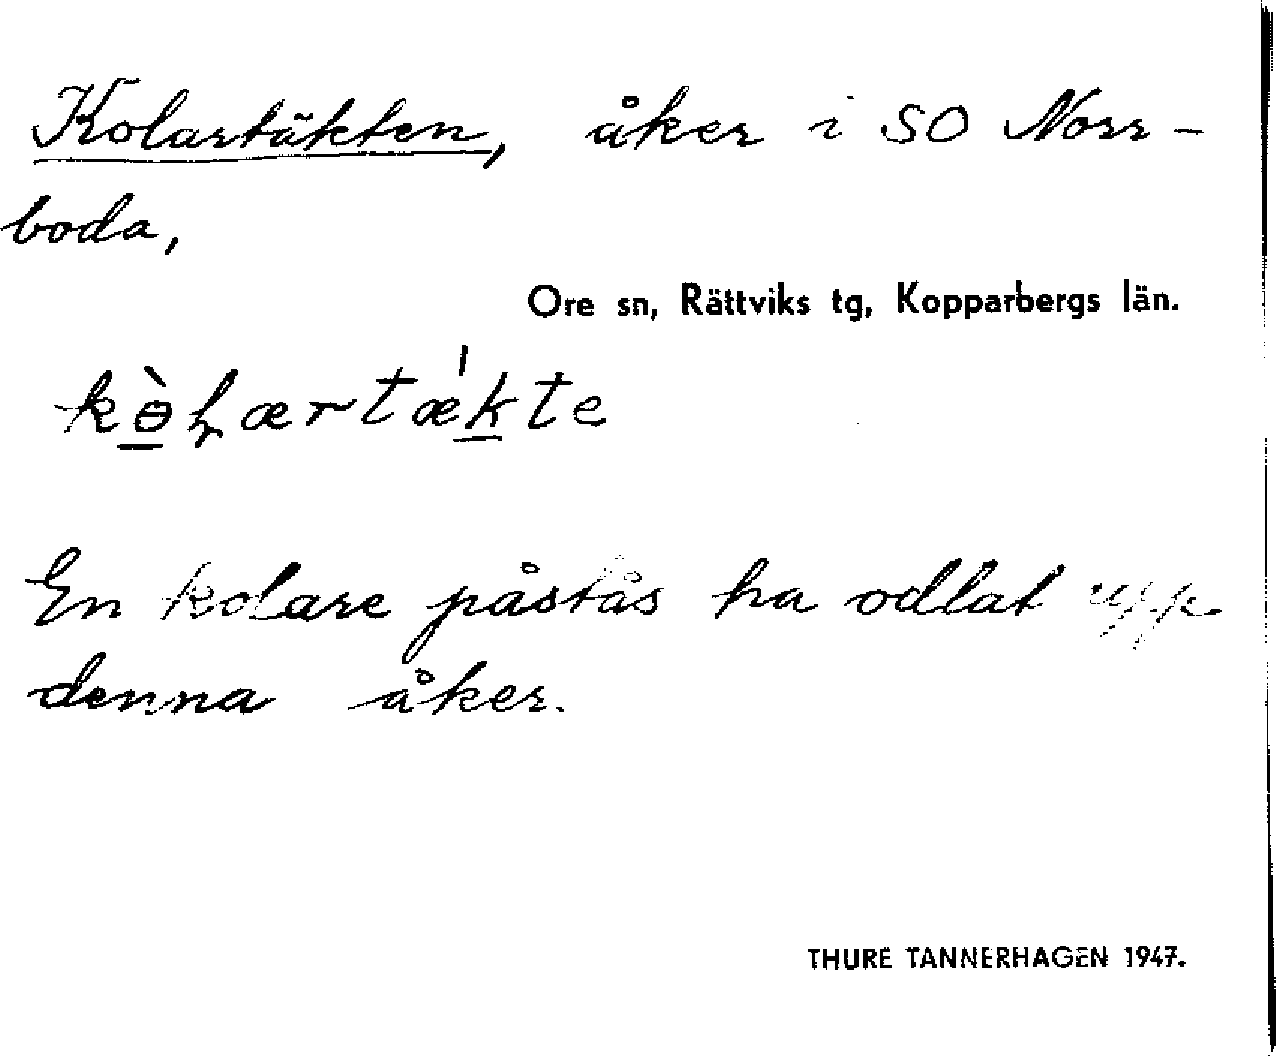 Kolartäkten, åker i SO Norr-
boda,
Ore sn, Rättviks tg, Kopparbergs län.
kɵ̀ɽærtæ'kte
En kolare påstås ha odlat upp
denna åker.
THURE TANNERHAGEN 1947.